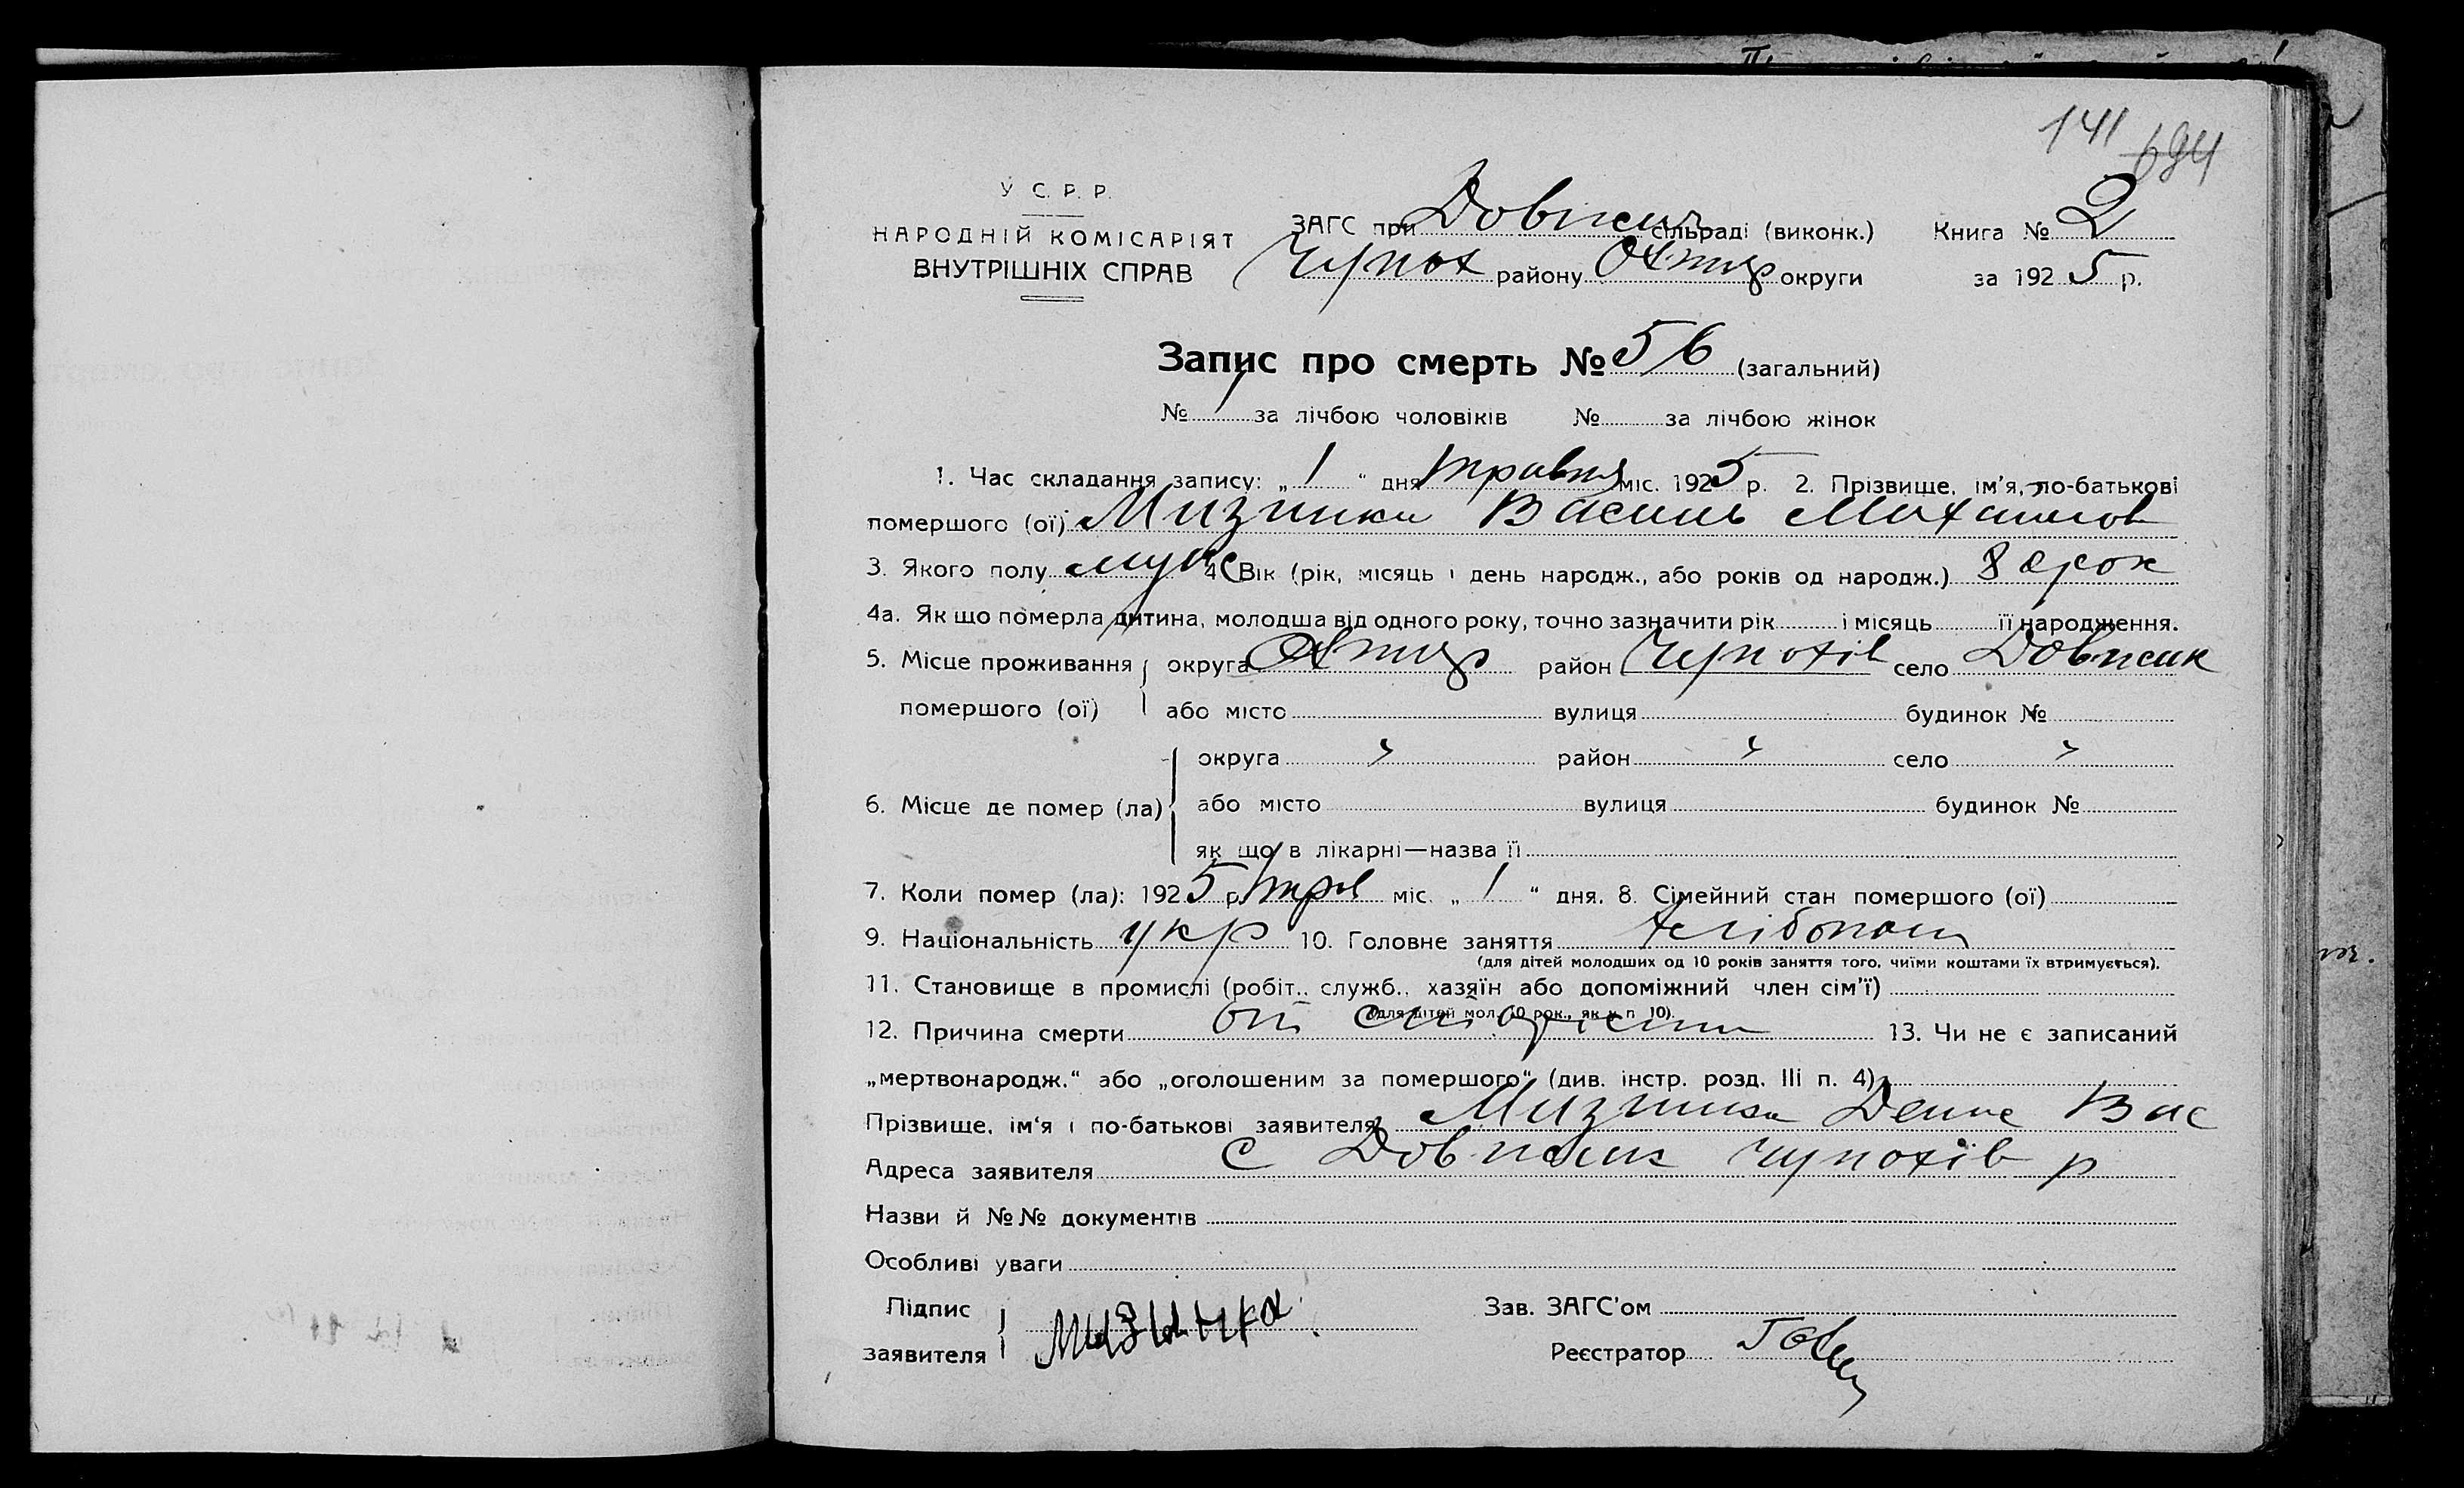 141 694
У С. Р. Р.
НАРОДНІЙ КОМІСАРІЯТ
ВНУТРІШНІХ СПРАВ
ЗАГС при сільраді (виконк.) Книга № 2
Чупах району Охтир округи за 1925 р.
Запис про смерть № 56 (загальний)
№ за лічбою чоловіків № за лічбою жінок
1. Час складання запису: „ 1 “ дня травня міс. 1925 р. 2. Прізвище, ім'я, по-батькові
помершого (ої) Мизинка Василь Михайлов
3. Якого полу муж 4. Вік (рік, місяць і день народж., або років од народж.) 8 рок
4а. Як що померла дитина, молодша від одного року, точно зазначити рік і місяць її народження.
5. Місце проживання округа Охтир район Чупахів село Довжик
помершого (ої) або місто вулиця будинок №
округа " район " село "
6. Місце де помер (ла) або місто вулиця будинок №
як що в лікарні—назва її
7. Коли помер (ла): 1925 р. трав міс. „ 1 “ дня. 8. Сімейний стан помершого (ої)
9. Національність укр 10. Головне заняття хлібопаш
(для дітей молодших од 10 років заняття того, чиїми коштами їх втримується).
11. Становище в промислі (робіт., служб., хазяїн або допоміжний член сім'ї)
(для дітей мол. 10 рок., як у п 10).
12. Причина смерти от 13. Чи не є записаний
„мертвонародж.“ або „оголошеним за помершого“ (див. інстр. розд. III п. 4)
Прізвище, ім'я і по-батькові заявителя Мизинка Денис Вас
Адреса заявителя С Довжик Чупахів р
Назви й №№ документів
Особливі уваги
Підпис Зав. ЗАГС'ом
заявителя Мизинка Реєстратор